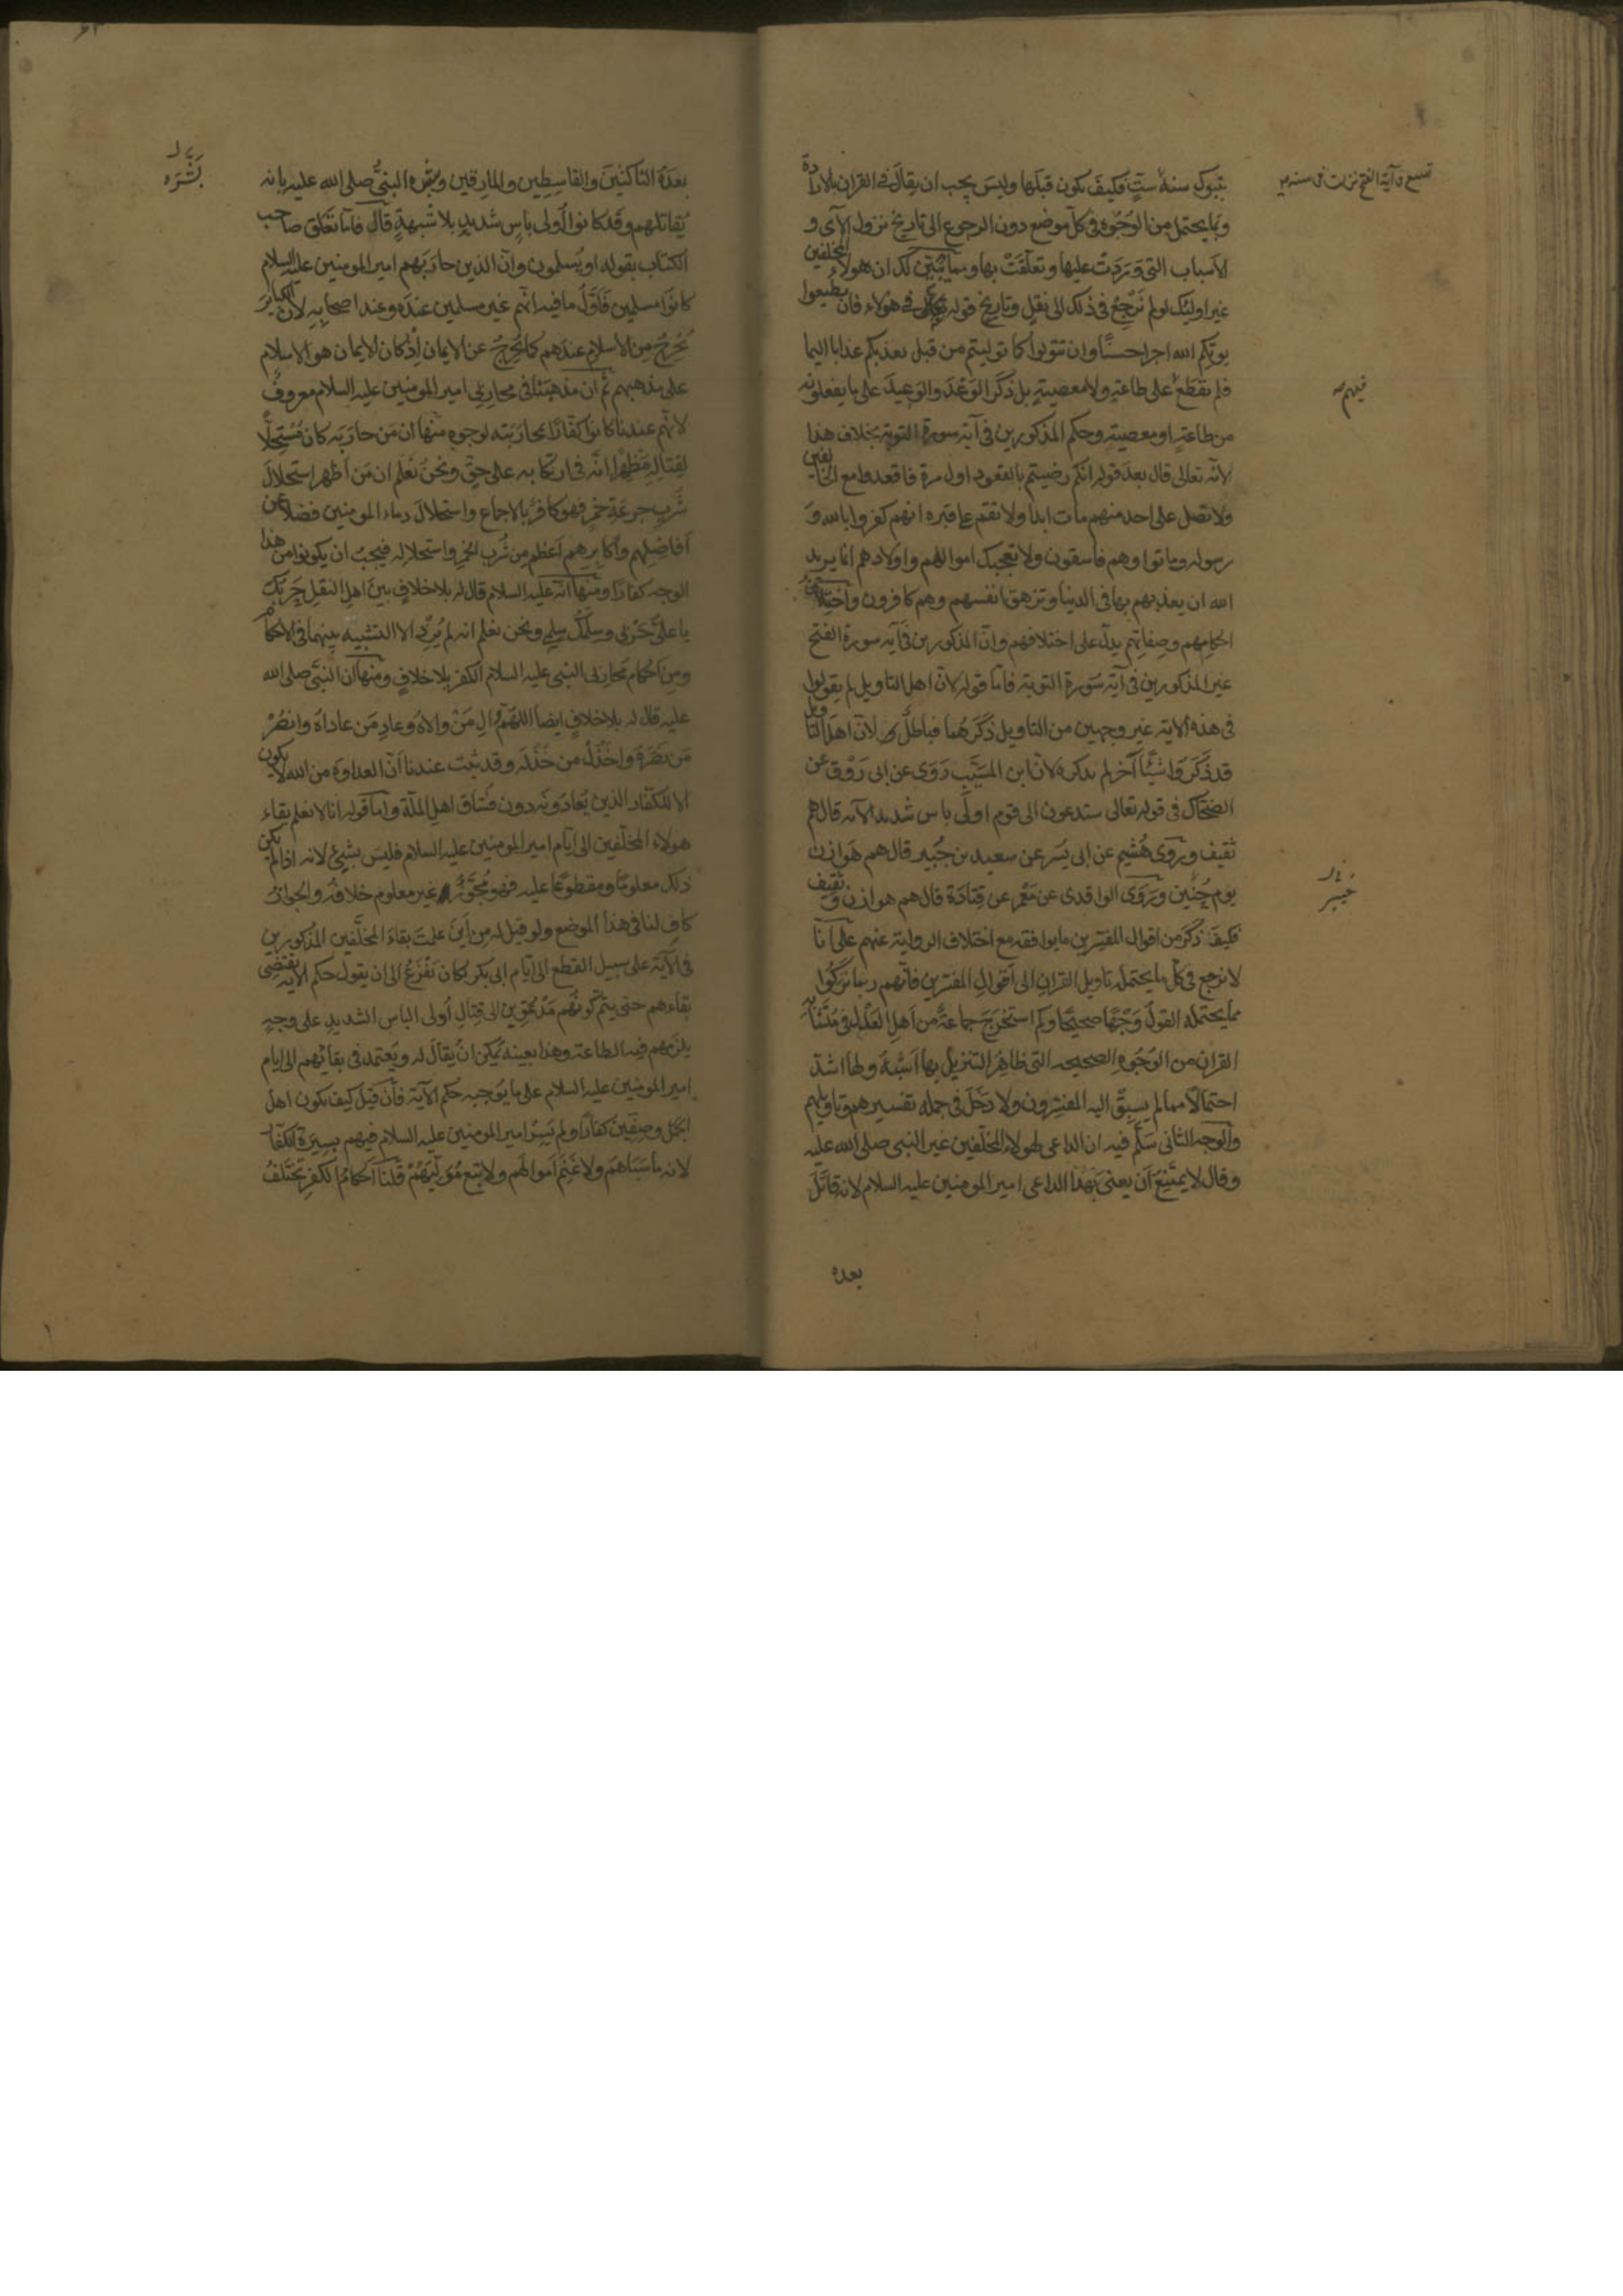 تسع وآية الفتح نزلت فى سنة
بتبوك سنة ستٍّ فكيفَ يكون قبلها وليسَ يجب ان يقالَ فى القران بالارادة
وبما يحتمل من الوُجُوه فى كل موضع دون الرجوع الى تاريخ نزول الآى و
الاسباب التى وَرَدَت عليها وتعلّقَتْ بها ومما يُبَيِّن لك ان هولاء المخلفين
غير اوليك لو لم نَرْجِعْ فى ذلك الى نقلٍ وتاريخ قوله تعالى فى هؤلاء فان تطيعوا
يوتكم الله اجرا حسنًا وان تتولوا كما توليتم من قبل يعذبكم عذابا اليما
فلم يقطَعْ على طاعةٍ ولا معصيةٍ بل ذَكَرَ الوَعْدَ والوَعِيدَ على ما يفعلونه
من طاعةٍ او معصيةٍ وحكم المذكورين فى آية سورة التوبة بخلاف هذا
لانّه تعالى قال بعدَ قوله انكم رضيتم بالقعود اول مرة فاقعدوا مع الخالفين
ولا تصل على احد منهم مات ابدا ولا تقم على قبره انهم كفروا بالله وَ
رسوله وماتوا وهم فاسقون ولا تعجبك اموالهم واولادهم انما يريد
الله ان يعذبهم بها فى الدنيا وتزهق انفسهم وهم كافرون واختلاف
احكامِهم وصِفاتِهم يدلّ على اختلافهم وانّ المذكورين فى آية سورة الفتح
غير المذكورين فى آية سَورة التوبة فاما قوله لانّ اهل التاويل لم يقولوا
فى هذه الاية غير وجهين من التاويل ذَكَرَهُما فباطلٌ لانّ اهلَ التاويل
قد ذَكَرَوا شيئًا آخر لم يذكره لانّ ابن المسَيَّب رَوَى عن ابى رَوْق عن
الضحّاك فى قوله تعالى ستدعون الى قوم اولى باس شديد الآية قال هم
ثقيف ورَوَى هُشيم عن ابى يَسر عن سعيد بن جُبير قال هم هَوازن
يوم حُنَين ورَوَى الواقدى عن مَعْمَر عن قتادَة قال هم هوازن وثقيف
فكيفَ ذَكَرَ من اقوال المفسّرين ما يوافقه مع اختلاف الرواية عنهم على انّا
لا نرجع فى كل ما يحتمله تاويل القرانِ الى اقوالِ المفسّرين فانّهم ربما تركُوا
مما يحتمله القولُ وَجْهًا صحيحًا وكم استخرَجَ جماعةٌ من اهل العَدْل فى مُتَشابِه
القران من الوُجُوهِ الصحيحه التى ظاهِرُ التنزيل بها اَشْبَهُ ولها اشدّ
احتمالًا مما لم يسبِقْ اليه المفسّرون ولا دَخَلَ فى جملة تفسيرهم وتاويلهم
والوجه الثانى سَلَّم فيه ان الداعى لهولاء المخلّفين غير النبى صلى الله عليه
وقال لا يمتَنِعُ اَن يعنىَ بهذا الداعى امير المومنين عليه السلام لانه قاتَلَ
فيهم
خيبر
بعده
بعدَهُ الناكثينَ والقاسِطِين والمارِقين وبشره النبىُّ صلى الله عليه بانه
يُقاتلهم وقد كانوا اُولى باسٍ شديدٍ بلا شُبهةٍ قال فاما تعَلّق صاحب
الكتاب بقوله او يُسلمون وانّ الذين حارَبَهم امير المومنين عليه السلام
كانُوا مسلمين فَاَوَّلُ ما فيه انّهم غير مسلمين عندَه وعند اصحابِهِ لان الكبايرَ
تُخرِجُ من الاسلام عندَهم كما تُخرِجُ عن الايمان اِذ كان الايمان هو الاسلام
على مذهبهم ثم ان مذهبَنا فى محاربى امير المومنين عليه السلام معروفٌ
لانهم عندنا كانوا كفّارًا بمحارَبَته لوجوه منها ان مَن حارَبَه كان مُسْتحِلًّا
لِقتالِهِ مُظهِرًا انّه فى ارتكابه على حقٍّ ونحنُ نَعْلم ان مَن اَظهر استحلالَ
شُربِ جرعَةِ خمرٍ فهو كافرٌ بالاجماع واستحلالُ دماء المومنين فضلا عن
اَفاضِلِهم واَكابِرِهم اَعظم من شُرب الخمر واستحلاله فيجبُ ان يكونوا من هذا
الوجه كفارًا ومنها انّه عليه السلام قال له بلا خلافٍ بينَ اهل النقلِ حَربُكَ
يا على حَرْبى وسِلمُك سلمى ونحن نعلم انه لم يُرِدْ الا التشبيه بينهما فى الاحكام
ومن اَحكام مُحارِبى النبى عليه السلام الكفر بلا خلافٍ ومنها ان النبىَّ صلى الله
عليه قال له بلا خلافٍ ايضا اللهم والِ مَنْ والاهُ وعادِ مَن عاداهُ وانصُرْ
مَن نصَرَهُ واخذُلْ من خَذَلَه وقد ثبت عندنا اَنّ العداوة من الله لا يكون
الا للكفّار الذين يُعادُونه دون فُسّاق اهلِ الملّة واما قوله انا لا نعلم بقاء
هولاء المخلّفين الى ايّام امير المومنين عليه السلام فليسَ بشيءٍ لانه اذا لم يكن
ذلك معلومًا ومقطوعًا عليه فهو مُجَوَّزٌ وغير معلوم خلافُه والجوازُ
كافٍ لنا فى هذا الموضع ولو قيل له مِن اَينَ علمتَ بقاءَ المخلَّفين المذكورين
فى الآية على سبيل القطع الى ايّام ابى بكرٍ لكان يَفْزَعُ الى ان يقول حكم الاية يقتضى
بقاءهم حتى يتمّ كونُهُم مَدْعُوِّين الى قتالِ اُولى الباس الشديدِ على وجهٍ
يلزَمهم فيه الطاعة وهذا بعينه يُمكِن انْ يُقالَ له ويَعتمد فى بقائهم الى ايام
امير المومنين عليه السلام على ما يُوجبه حكم الآية فاِن قيل كيف يكون اهل
الجمل وصِفّين كفارًا ولم يَسِرْ امير المومنين عليه السلام فيهم بسِيرَة الكفّار
لانه ما سَبَاهم ولا غَنِم اَموالَهم ولا يتبع مُوَلِّيَهُمْ قلنا اَحكامُ الكفرِ تختَلفُ
بَشَّرَه